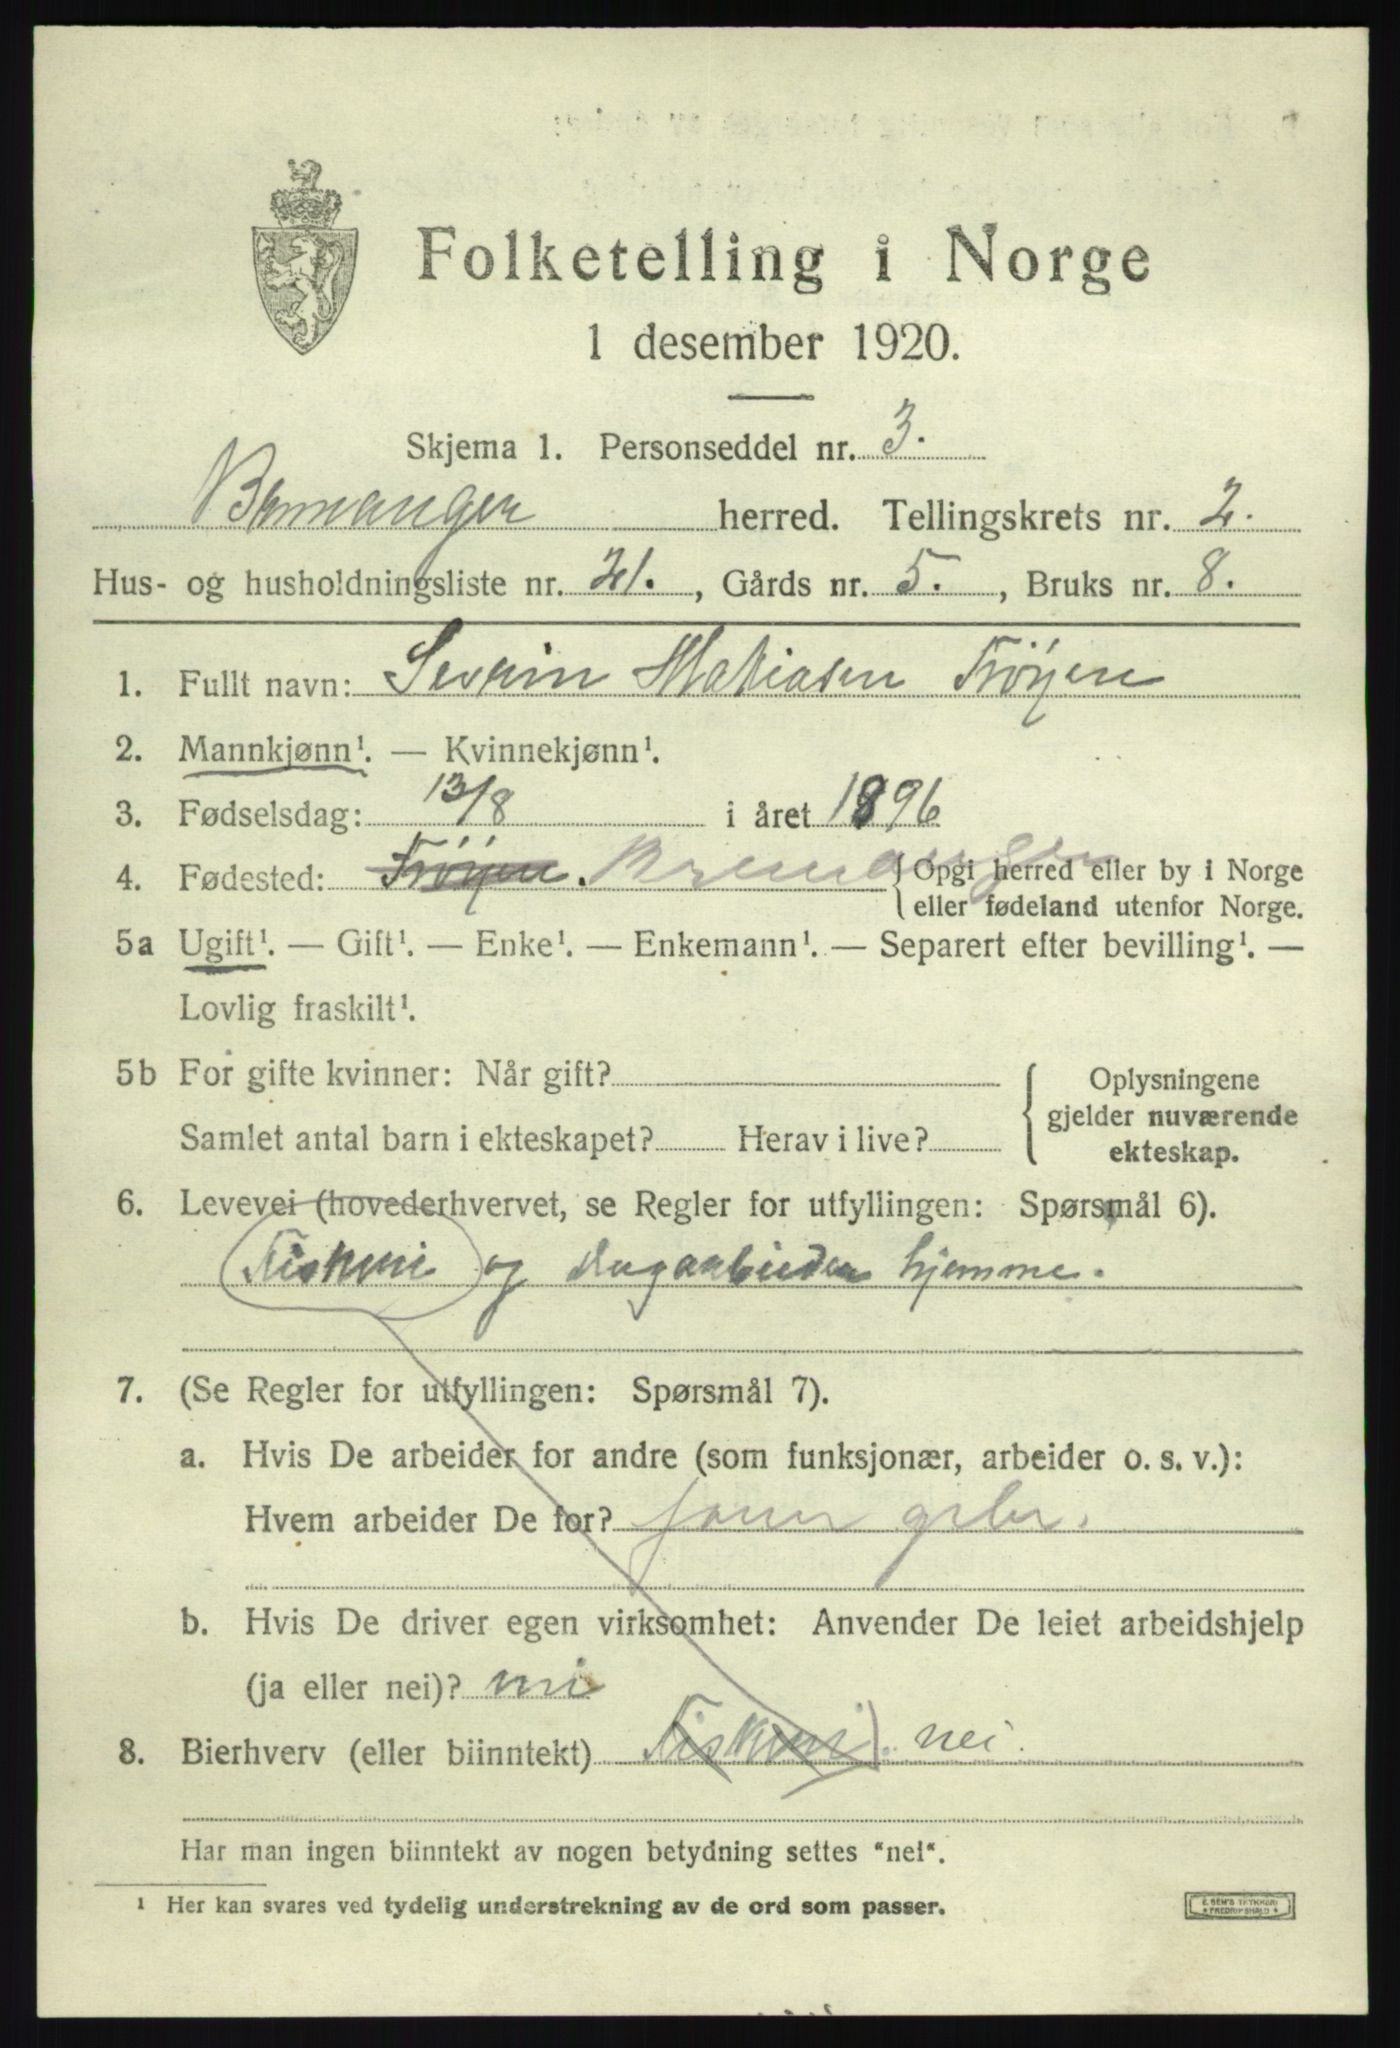 Folketelling i Norge
1 desember 1920.
Skjema 1. Personseddel nr. 3.
Bremanger herred. Tellingskrets nr. 2.
Hus- og husholdningsliste nr. 21., Gårds nr. 5., Bruks nr. 8.
1. Fullt navn: Severin Matiasen Fröyen
2. Mannkjønn¹. — Kvinnekjønn¹.
3. Fødselsdag: 13/8 i året 1896
4. Fødested: Fröyen. Bremanger { Opgi herred eller by i Norge
eller fødeland utenfor Norge.
5a Ugift¹. — Gift¹. — Enke¹. — Enkemann¹. — Separert efter bevilling¹. —
Lovlig fraskilt¹.
5b For gifte kvinner: Når gift?
Samlet antal barn i ekteskapet? Herav i live?
{ Oplysningene
gjelder nuværende
ekteskap.
6. Levevei (hovederhvervet, se Regler for utfyllingen: Spørsmål 6).
Fiskeri og hjemme.
7. (Se Regler for utfyllingen: Spørsmål 7).
a. Hvis De arbeider for andre (som funksjonær, arbeider o. s. v.):
Hvem arbeider De for?
b. Hvis De driver egen virksomhet: Anvender De leiet arbeidshjelp
(ja eller nei)? nei
8. Bierhverv (eller biinntekt) Fiskeri). nei.
Har man ingen biinntekt av nogen betydning settes "nei".
¹ Her kan svares ved tydelig understrekning av de ord som passer.
E. SEM'S TRYKKERI
FREDRIKSHALD